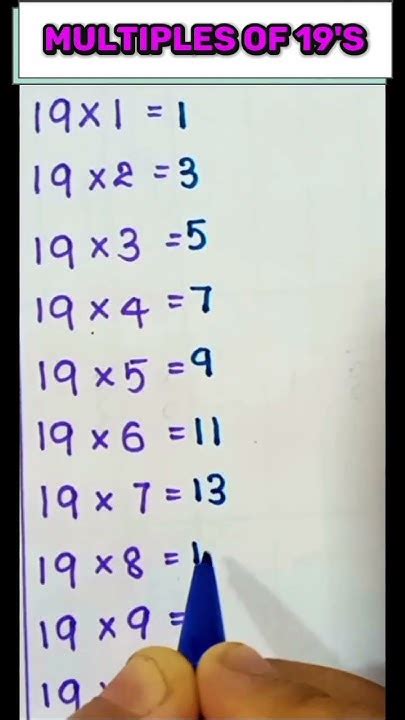 MULTIPLES OF 19'S
19 × 1 = 1
19 × 2 = 3
19 × 3 = 5
19 × 4 = 7
19 × 5 = 9
19 × 6 = 11
19 × 7 = 13
19 × 8 = 1
19 × 9 =
19